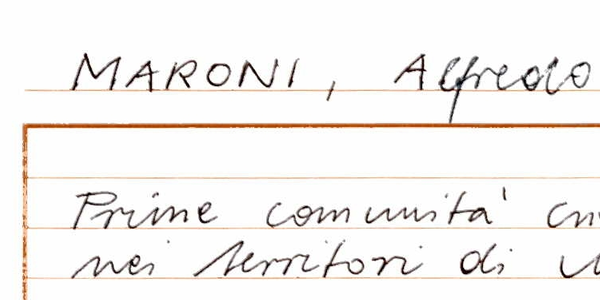 MARONI, Alfredo
Prime comunità
nei territori di